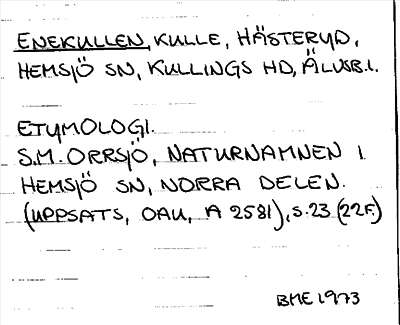 ENEKULLEN, KULLE, HÄSTERYD,
HEMSJÖ SN, KULLINGS HD, ÄLVSB.l.
ETYMOLOGI.
S.M. ORRSJÖ, NATURNAMNEN I
HEMSJÖ SN, NORRA DELEN.
(UPPSATS, OAU, A 2581), S.23 (22F.)
BME 1973